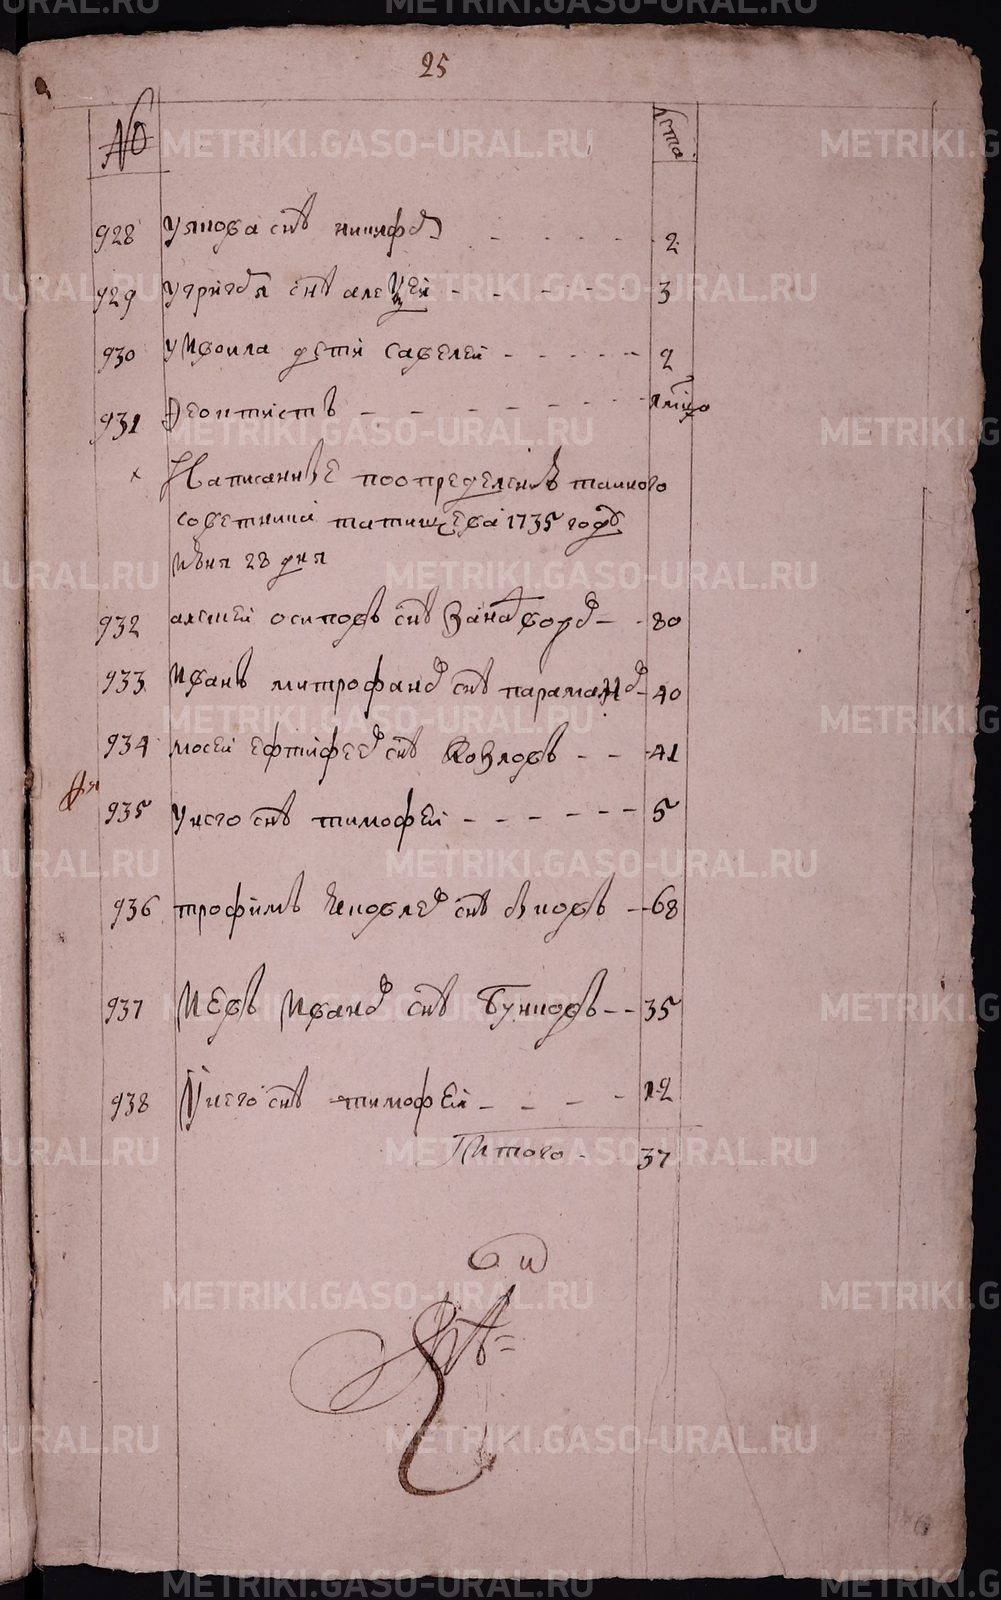 25
№ лѣта
928 У якова снъ никифоръ - - - - 2
929 У григоря снъ алеѯей - - - - - 3
930 У Иѳоила дети Савелей - - - - - 2
931 Ѳеоктистъ - - - - - - -
× Написанные поопределенію таиного
советника татищева 1735 году
июня 23 дня
932 алеѯей осиповъ снъ - - 80
933 Иванъ митрофановъ снъ - 40
934 мосей ефтифеевъ снъ Козловъ - - 41
935 У него снъ тимофей - - - - - - 5
936 трофимъ яковлевъ снъ быковъ - - 68
937 Иевъ Ивановъ снъ Бунковъ - - 35
938 У него снъ тимофей - - - - 12
Итого - 37
METRIKI.GASO-URAL.RU